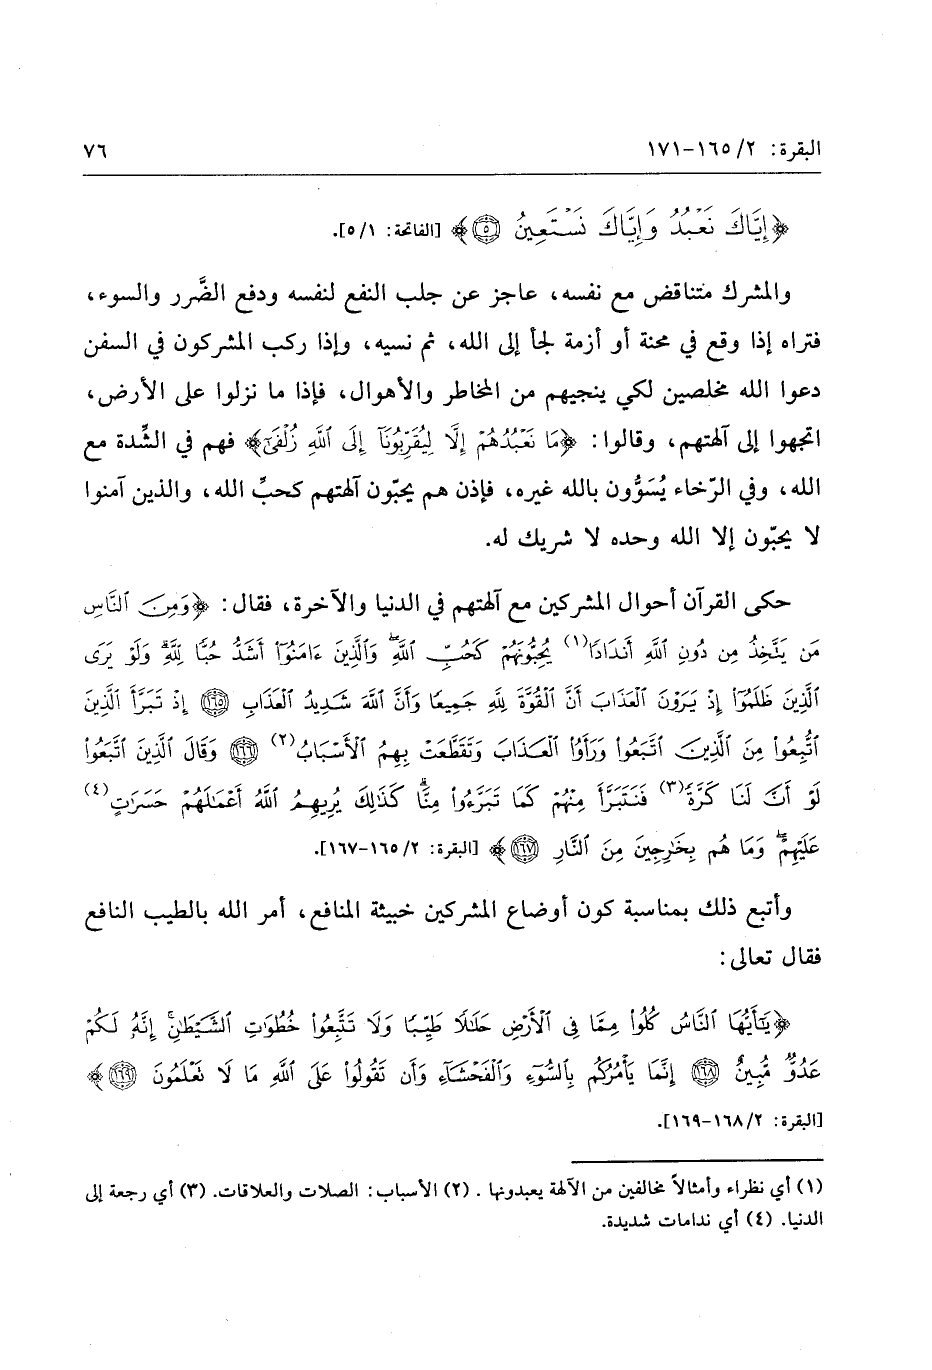 البقرة: ٢/ ١٦٥-١٧١ ٧٦
﴿إِيَّاكَ نَعۡبُدُ وَإِيَّاكَ نَسۡتَعِينُ ۝٥﴾ [الفاتحة: ١/ ٥].
والمشرك متناقض مع نفسه، عاجز عن جلب النفع لنفسه ودفع الضَّرر والسوء،
فتراه إذا وقع في محنة أو أزمة لجأ إلى الله، ثم نسيه، وإذا ركب المشركون في السفن
دعوا الله مخلصين لكي ينجيهم من المخاطر والأهوال، فإذا ما نزلوا على الأرض،
اتجهوا إلى آلهتهم، وقالوا: ﴿مَا نَعۡبُدُهُمۡ إِلَّا لِيُقَرِّبُونَآ إِلَى ٱللَّهِ زُلۡفَىٰٓ﴾ فهم في الشِّدة مع
الله، وفي الرّخاء يُسَوُّون بالله غيره، فإذن هم يحبّون آلهتهم كحبِّ الله، والذين آمنوا
لا يحبّون إلا الله وحده لا شريك له.
حكى القرآن أحوال المشركين مع آلهتهم في الدنيا والآخرة، فقال: ﴿وَمِنَ ٱلنَّاسِ
مَن يَتَّخِذُ مِن دُونِ ٱللَّهِ أَندَادٗا(١) يُحِبُّونَهُمۡ كَحُبِّ ٱللَّهِۖ وَٱلَّذِينَ ءَامَنُوٓاْ أَشَدُّ حُبّٗا لِّلَّهِۗ وَلَوۡ يَرَى
ٱلَّذِينَ ظَلَمُوٓاْ إِذۡ يَرَوۡنَ ٱلۡعَذَابَ أَنَّ ٱلۡقُوَّةَ لِلَّهِ جَمِيعٗا وَأَنَّ ٱللَّهَ شَدِيدُ ٱلۡعَذَابِ ۝١٦٥ إِذۡ تَبَرَّأَ ٱلَّذِينَ
ٱتُّبِعُواْ مِنَ ٱلَّذِينَ ٱتَّبَعُواْ وَرَأَوُاْ ٱلۡعَذَابَ وَتَقَطَّعَتۡ بِهِمُ ٱلۡأَسۡبَابُ(٢) ۝١٦٦ وَقَالَ ٱلَّذِينَ ٱتَّبَعُواْ
لَوۡ أَنَّ لَنَا كَرَّةٗ(٣) فَنَتَبَرَّأَ مِنۡهُمۡ كَمَا تَبَرَّءُواْ مِنَّاۗ كَذَٰلِكَ يُرِيهِمُ ٱللَّهُ أَعۡمَٰلَهُمۡ حَسَرَٰتٍ(٤)
عَلَيۡهِمۡۖ وَمَا هُم بِخَٰرِجِينَ مِنَ ٱلنَّارِ ۝١٦٧﴾ [البقرة: ٢/ ١٦٥-١٦٧].
وأتبع ذلك بمناسبة كون أوضاع المشركين خبيثة المنافع، أمر الله بالطيب النافع
فقال تعالى:
﴿يَٰٓأَيُّهَا ٱلنَّاسُ كُلُواْ مِمَّا فِي ٱلۡأَرۡضِ حَلَٰلٗا طَيِّبٗا وَلَا تَتَّبِعُواْ خُطُوَٰتِ ٱلشَّيۡطَٰنِۚ إِنَّهُۥ لَكُمۡ
عَدُوّٞ مُّبِينٌ ۝١٦٨ إِنَّمَا يَأۡمُرُكُم بِٱلسُّوٓءِ وَٱلۡفَحۡشَآءِ وَأَن تَقُولُواْ عَلَى ٱللَّهِ مَا لَا تَعۡلَمُونَ ۝١٦٩﴾
[البقرة: ٢/ ١٦٨-١٦٩].
(١) أي نظراء وأمثالاً مخالفين من الآلهة يعبدونها . (٢) الأسباب: الصلات والعلاقات. (٣) أي رجعة إلى
الدنيا. (٤) أي ندامات شديدة.